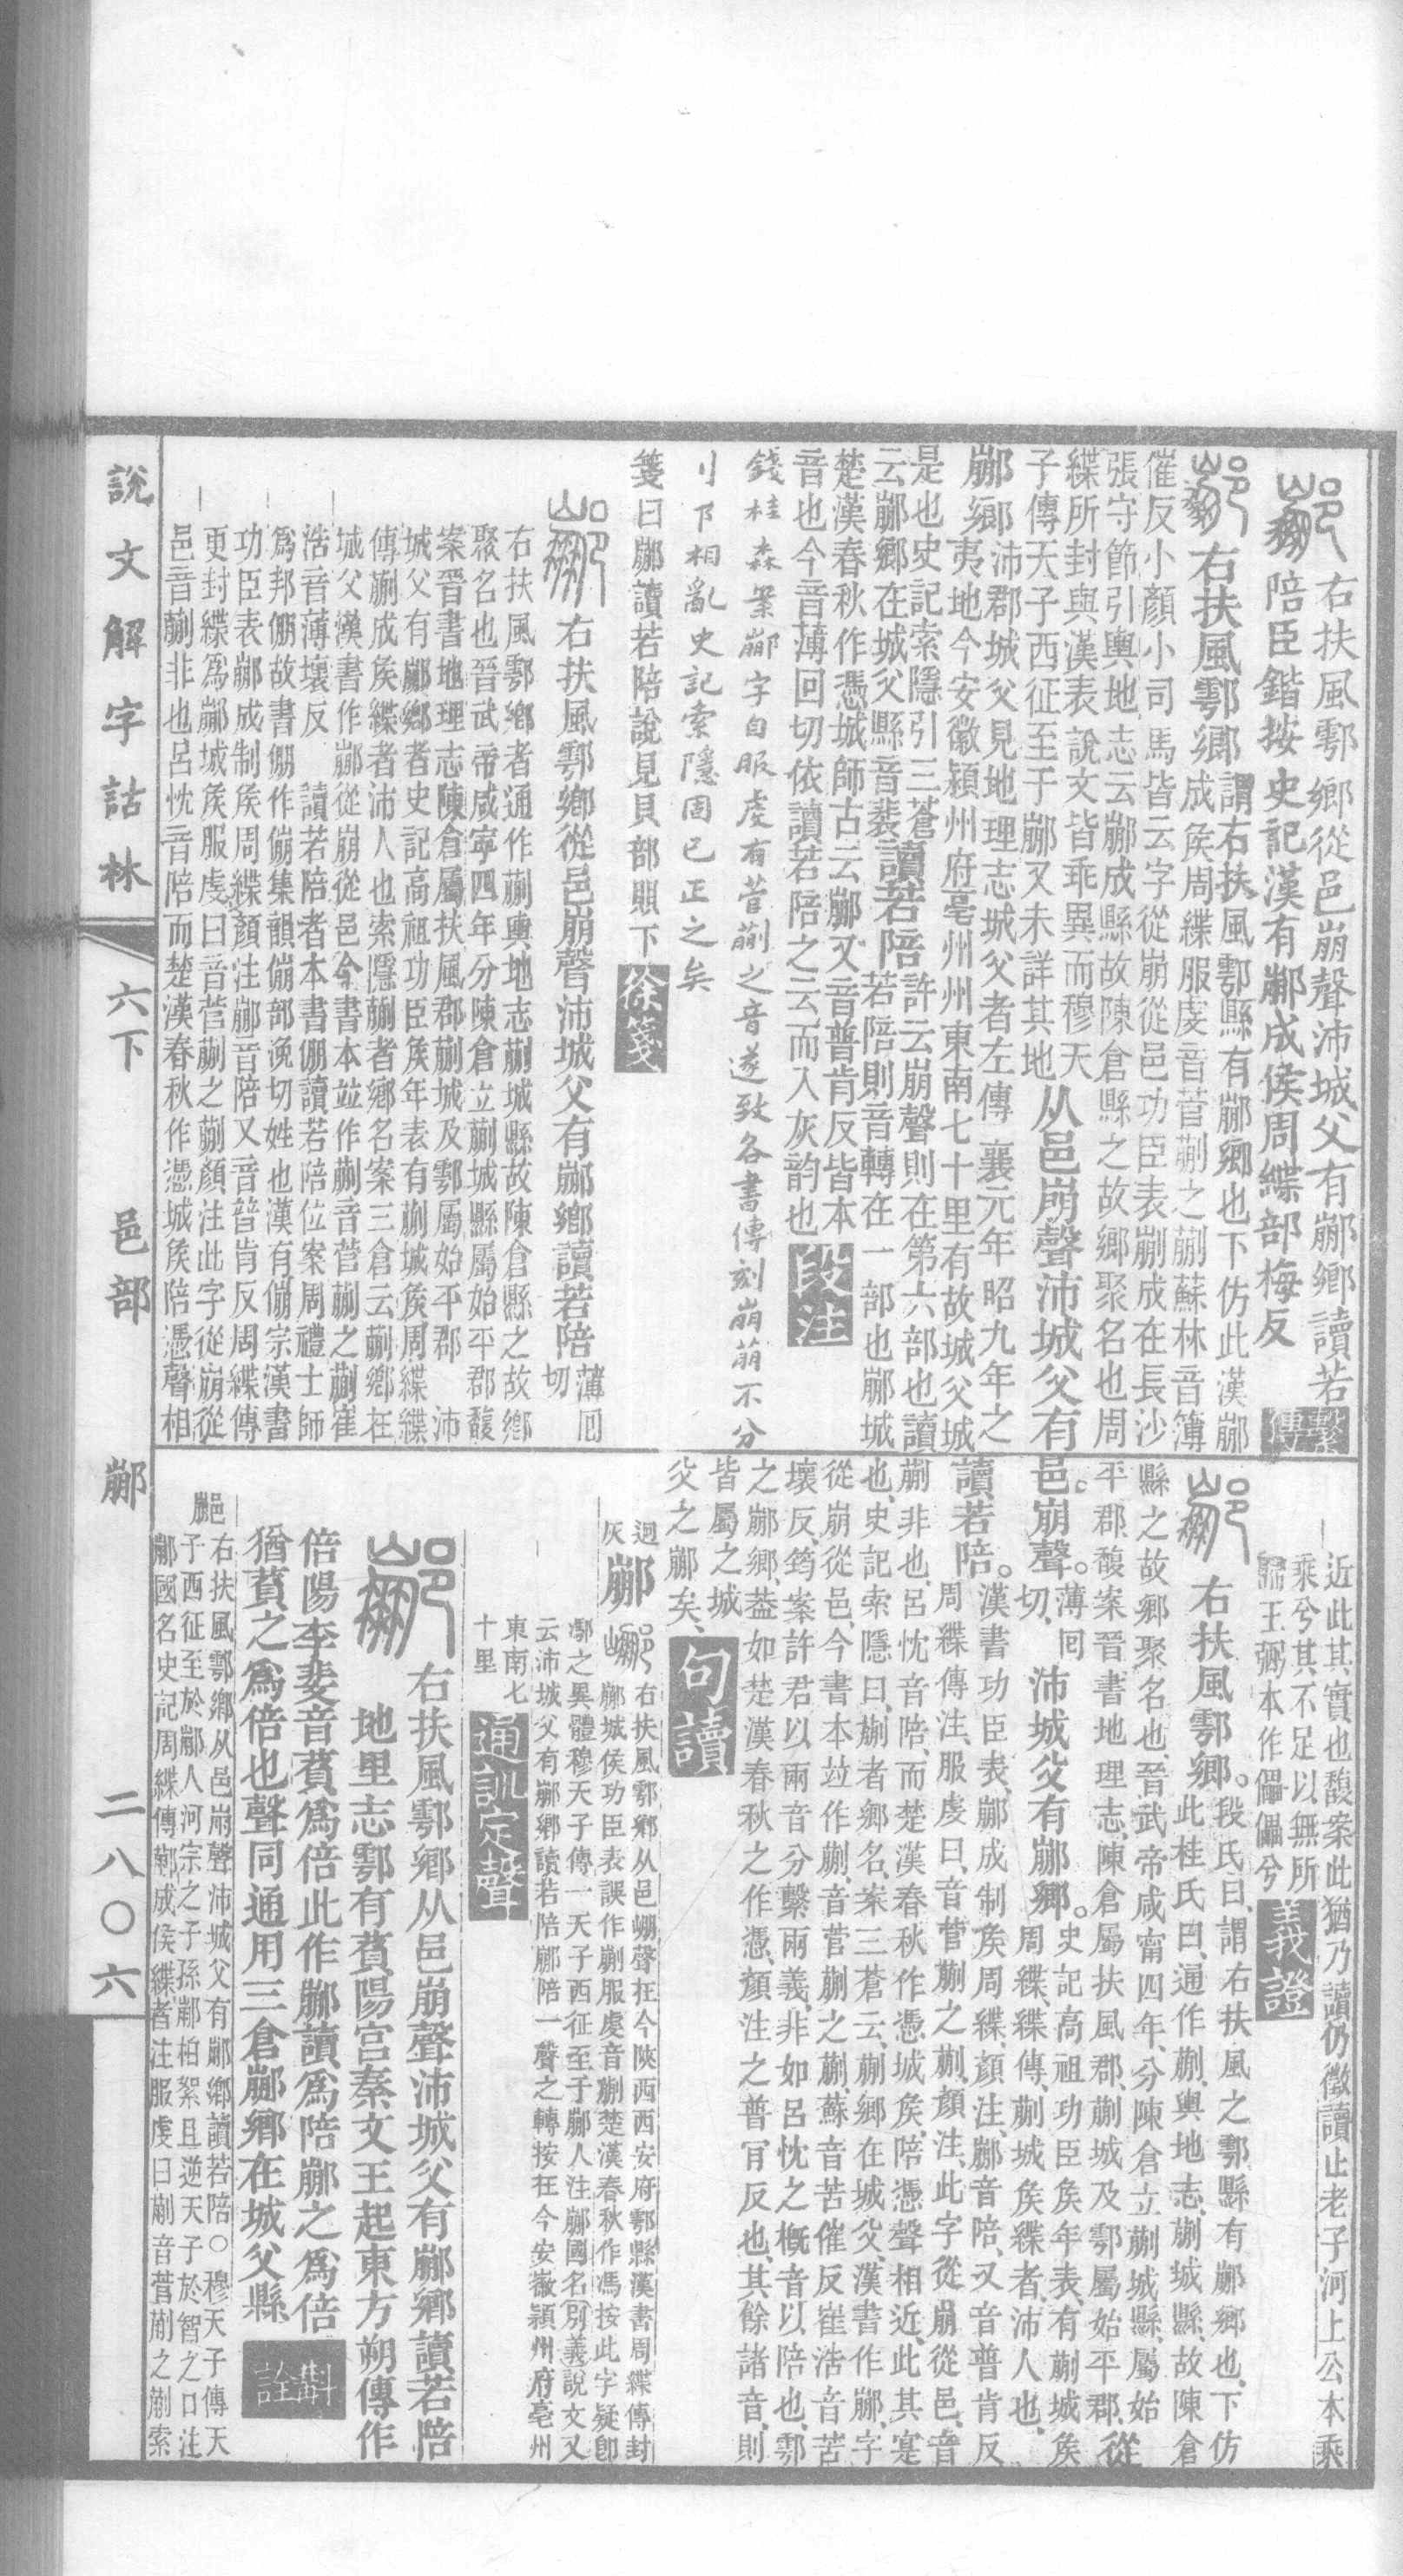 右扶風鄠鄉從邑崩聲沛城父有𨞙鄉讀若
陪臣鍇按史記漢有𨞙成侯周緤部梅反
繫傳
右扶風鄠鄉
謂右扶風鄠縣有𨞙鄉也下仿此漢𨞙
成矦周緤服虔音菅蒯之蒯蘇林音簿
催反小顏小司馬皆云字從崩從邑功臣表蒯成在長沙
張守節引輿地志云𨞙成縣故陳倉縣之故鄉聚名也周
緤所封與漢表說文皆乖異而穆天
子傳天子西征至于𨞙又未詳其地
从邑崩聲沛城父有
𨞙鄉
沛郡城父見地理志城父者左傳襄元年昭九年之
夷地今安徽潁州府亳州州東南七十里有故城父城
是也史記索隱引三蒼
云𨞙鄉在城父縣音裴
讀若陪
許云崩聲則在第六部也讀
若陪則音轉在一部也𨞙城
楚漢春秋作憑城師古云𨞙又音普肯反皆本
音也今音薄回切依讀若陪之云而入灰韵也
段注
錢桂森案𨞙字自服虔有菅蒯之音遂致各書傳刻崩萠不分
刂卩相亂史記索隱固已正之矣
箋曰𨞙讀若陪說見貝部䝿下
徐箋
右扶風鄠鄉從邑崩聲沛城父有𨞙鄉讀若陪
薄回
切
右扶風鄠鄉者通作蒯輿地志蒯城縣故陳倉縣之故鄉
聚名也晉武帝咸寧四年分陳倉立蒯城縣屬始平郡馥
案晉書地理志陳倉屬扶風郡蒯城及鄠屬始平郡　沛
城父有𨞙鄉者史記高祖功臣矦年表有蒯城矦周緤
傳蒯成矦緤者沛人也索隱蒯者鄉名案三倉云蒯鄉在
城父漢書作𨞙從崩從邑今書本竝作蒯音菅蒯之蒯崔
浩音薄壞反　讀若陪者本書倗讀若陪位案周禮士師
爲邦倗故書倗作傰集韻傰部浼切姓也漢有傰宗漢書
功臣表𨞙成制矦周緤顏注𨞙音陪又音普肯反周緤傳
更封緤爲𨞙城矦服虔曰音菅蒯之蒯顏注此字從崩從
邑音蒯非也呂忱音陪而楚漢春秋作憑城矦陪憑聲相
近此其實也馥案此猶乃讀仍徵讀止老子河上公本乘
乘兮其不足以無所
歸王弼本作儽儽兮
義證
右扶風鄠鄉。
段氏曰、謂右扶風之鄠縣有𨞙鄉也、下仿
此桂氏曰、通作蒯、輿地志、蒯城縣、故陳倉
縣之故鄉聚名也、晉武帝咸甯四年、分陳倉立蒯城縣、屬始
平郡、馥案晉書地理志、陳倉屬扶風郡、蒯城及鄠屬始平郡、
從
邑。崩聲。
薄回
切、
沛城父有𨞙鄉。
史記高祖功臣矦年表、有蒯城矦
周緤、緤傳、蒯城矦緤者、沛人也、
讀若陪。
漢書功臣表、𨞙成制矦周緤、顏注、𨞙音陪、又音普肯反、
周緤傳注、服虔曰、音菅蒯之蒯、顏注、此字從崩從邑、音
蒯非也、呂忱音陪、而楚漢春秋作憑城矦、陪憑聲相近、此其寔
也、史記索隱曰、蒯者鄉名、案三蒼云、蒯鄉在城父、漢書作𨞙、字
從崩從邑、今書本竝作蒯、音菅蒯之蒯、蘇音苦催反、崔浩音苦
壞反、筠案許君以兩音分繫兩義、非如呂忱之槪音以陪也、鄠
之𨞙鄉、葢如楚漢春秋之作憑、顏注之普肎反也、其餘諸音、則
皆屬之城
父之𨞙矣、
句讀
迴
灰
𨞙
右扶風鄠鄉从邑崩聲在今陝西西安府鄠縣漢書周緤傳封
𨞙城侯功臣表誤作蒯服虔音蒯楚漢春秋作馮按此字疑卽
鄁之異體穆天子傳一天子西征至于𨞙人注𨞙國名〔別義〕說文又
云沛城父有𨞙鄉讀若陪𨞙陪一聲之轉按在今安徽潁州府亳州
東南七
十里
通訓定聲
右扶風鄠鄉从邑崩聲沛城父有𨞙鄉讀若陪
地里志鄠有萯陽宮秦文王起東方朔傳作
倍陽李斐音萯爲倍此作𨞙讀爲陪𨞙之爲倍
猶萯之爲倍也聲同通用三倉𨞙鄉在城父縣
斠詮
邑
𨞙
右扶風鄠鄉从邑崩聲沛城父有𨞙鄉讀若陪○穆天子傳天
子西征至於𨞙人河宗之子孫𨞙柏絮且逆天子於智之口注
𨞙國名史記周緤傳𨞙成侯緤者注服虔曰蒯音菅蒯之蒯索
說文解字詁林　六下　邑部　𨞙　二八〇六